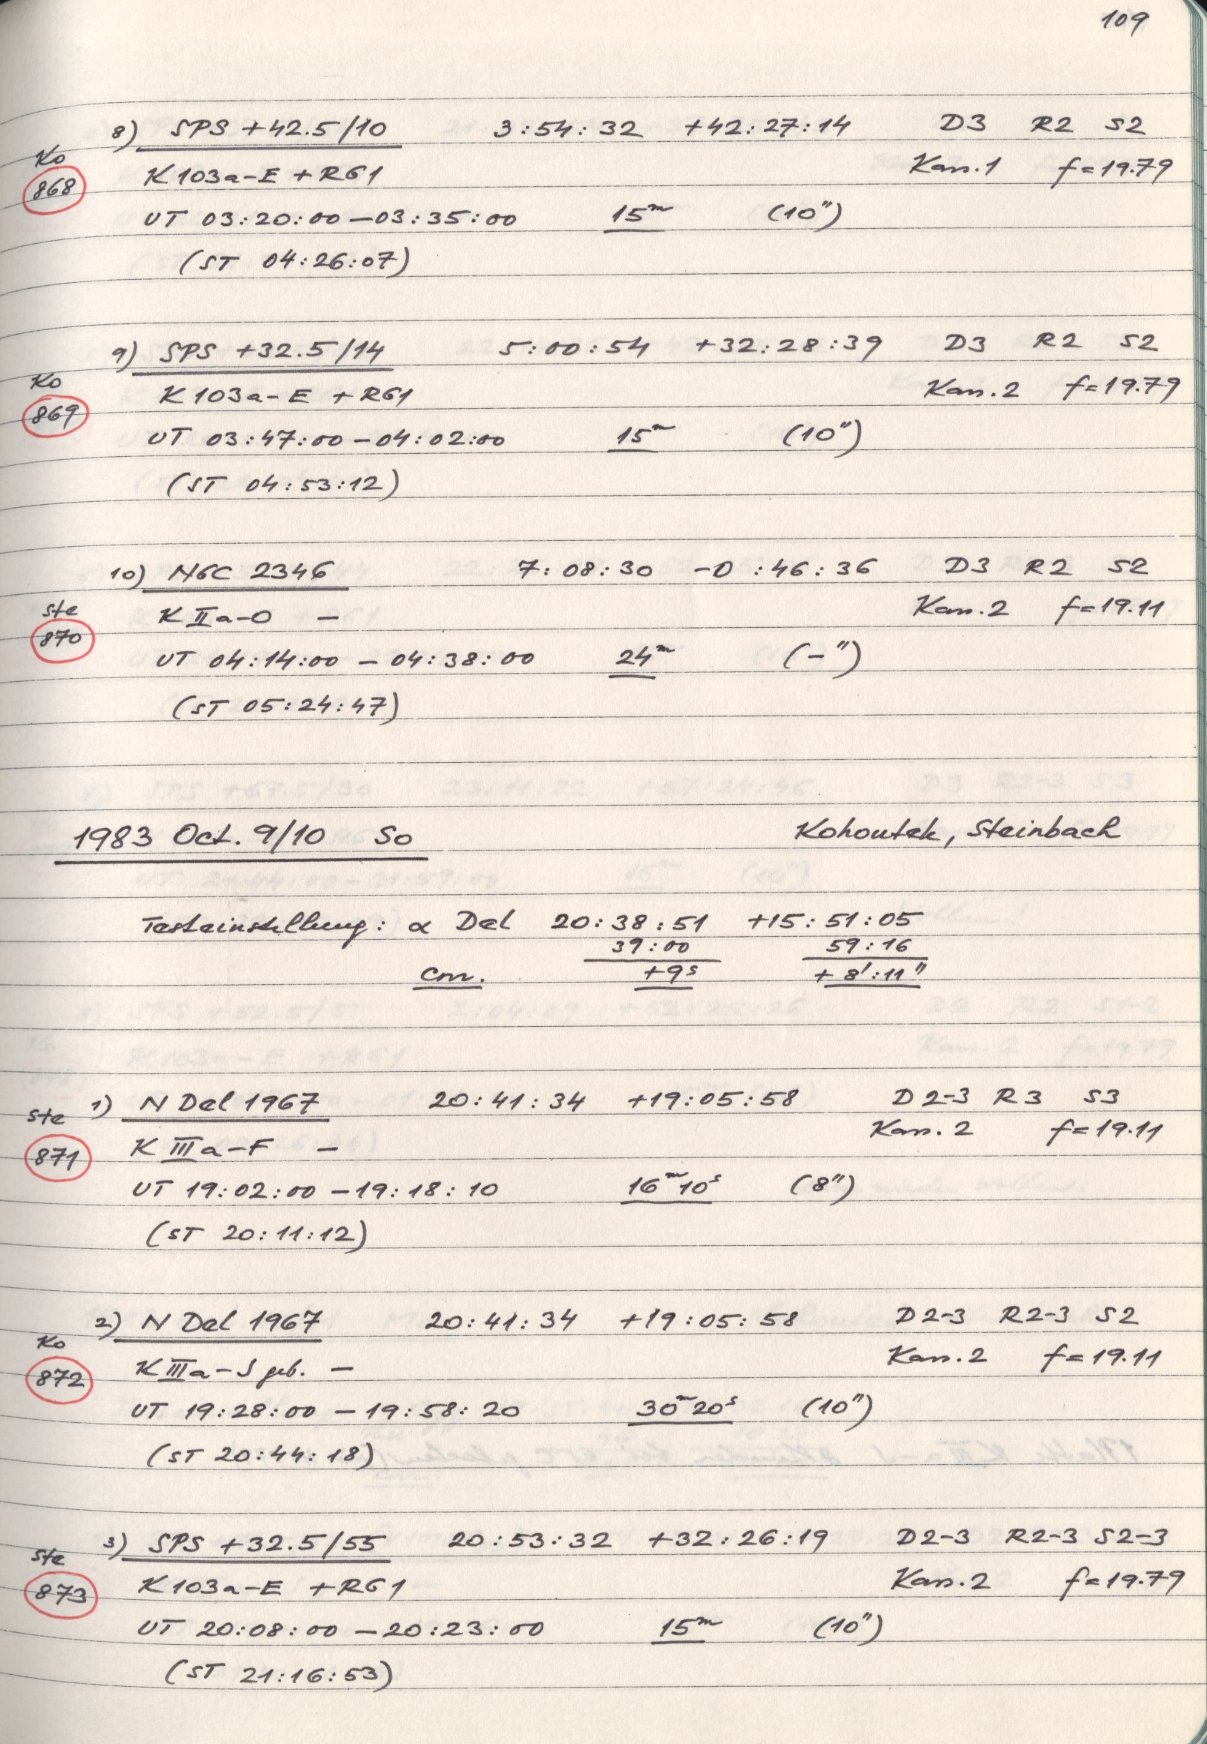 109
8) SPS +42.5/10 3:54:32 +42:27:14 D3 R2 S2
Ko 868 K103a-E +RG1 Kan.1 f=19.79
UT 03:20:00 – 03:35:00 15ᵐ (10")
(ST 04:26:07)
9) SPS +32.5/14 5:00:54 +32:28:39 D3 R2 S2
Ko 869 K103a-E +RG1 Kan.2 f=19.79
UT 03:47:00 – 04:02:00 15ᵐ (10")
(ST 04:53:12)
10) NGC 2346 7:08:30 -0:46:36 D3 R2 S2
Ste 870 K IIa-O – Kan.2 f=19.11
UT 04:14:00 – 04:38:00 24ᵐ (–")
(ST 05:24:47)
1983 Oct. 9/10 So Kohoutek, Steinbach
Testeinstellung: α Del 20:38:51 +15:51:05
39:00 59:16
Corr. +9ˢ +8':11"
1) N Del 1967 20:41:34 +19:05:58 D2-3 R3 S3
Ste 871 K IIIa-F – Kan.2 f=19.11
UT 19:02:00 – 19:18:10 16ᵐ10ˢ (8")
(ST 20:11:12)
2) N Del 1967 20:41:34 +19:05:58 D2-3 R2-3 S2
Ko 872 K IIIa-J geb. – Kan.2 f=19.11
UT 19:28:00 – 19:58:20 30ᵐ20ˢ (10")
(ST 20:44:18)
3) SPS +32.5/55 20:53:32 +32:26:19 D2-3 R2-3 S2-3
Ste 873 K103a-E +RG1 Kan.2 f=19.79
UT 20:08:00 – 20:23:00 15ᵐ (10")
(ST 21:16:53)